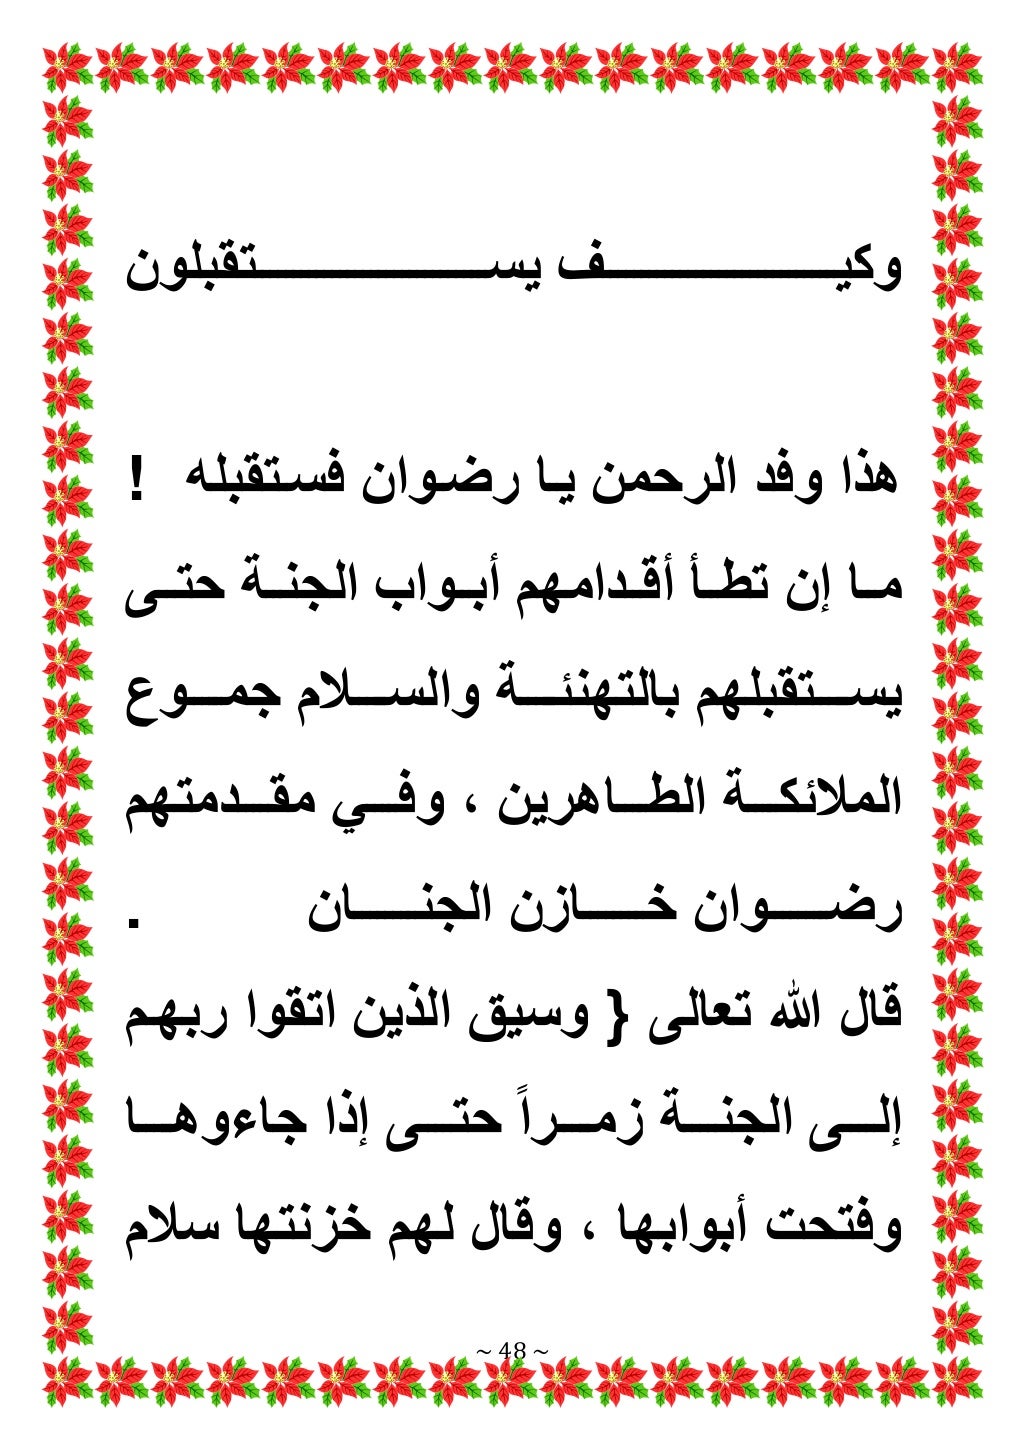 وكيف يستقبلون
هذا وفد الرحمن يا رضوان فستقبله !
ما إن تطأ أقدامهم أبواب الجنة حتى
يستقبلهم بالتهنئة والسلام جموع
الملائكة الطاهرين ، وفي مقدمتهم
رضوان خازن الجنان .
قال الله تعالى { وسيق الذين اتقوا ربهم
إلى الجنة زمراً حتى إذا جاءوها
وفتحت أبوابها ، وقال لهم خزنتها سلام
~ 48 ~